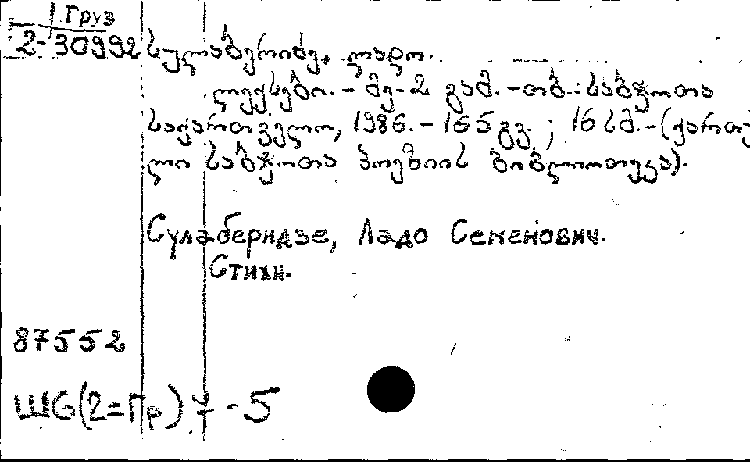 Груз
2-30992
სულაბერიძე, ლადო.
ლექსები. - მე-2 გამ. - თბ.: საბჭოთა
საქართველო, 1986. - 165 გვ. ; 16 სმ. - (ქართუ-
ლი საბჭოთა პოეზიის ბიბლიოთეკა).
Сулаберидзе, Ладо Семенович.
Стихи.
87552
Ш6(2=Гр)7-5